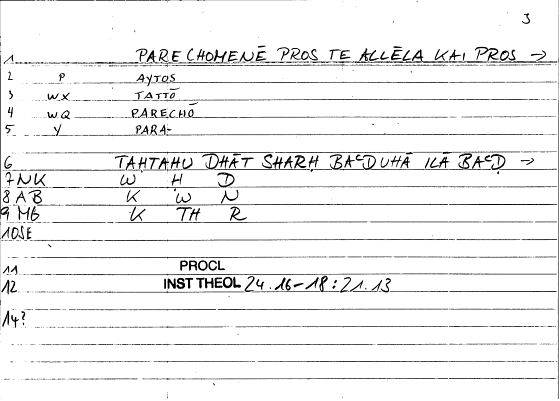 3
1 PARECHOMENĒ PROS TE ALLĒLA KAI PROS →
2 P AYTOS
3 WX TATTŌ
4 WQ PARECHŌ
5 Y PARA-
6 TAḤTAHU DHĀT SHARḤ BAᶜḌUHĀ ILĀ BAᶜḌ →
7 NK W Ḥ D
8 AB K W N
9 MG K TH R
10 SE
11 PROCL
12 INST THEOL 24.16-18:21.13
14?